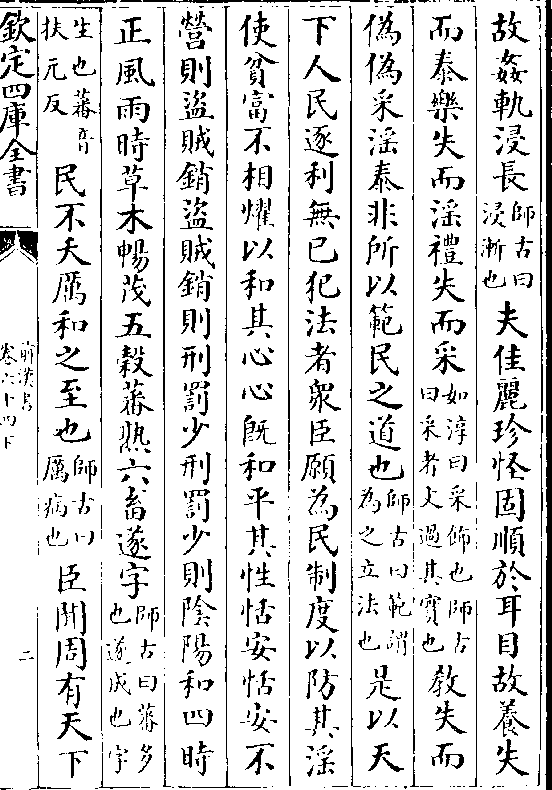 故姦軌浸長師古曰浸漸也夫佳麗珍怪固順於耳目故養失
而泰樂失而淫禮失而采如淳曰采飾也師古曰采者文過其實也教失而
偽偽采淫泰非所以範民之道也師古曰範謂為之立法也是以天
下人民逐利無已犯法者衆臣願為民制度以防其淫
使貧富不相燿以和其心心既和平其性恬安恬安不
營則盜賊銷盜賊銷則刑罰少刑罰少則陰陽和四時
正風雨時草木暢茂五穀蕃熟六畜遂字師古曰蕃多也遂成也字
生也蕃音扶元反民不夭厲和之至也師古曰厲病也臣聞周有天下
欽定四庫全書
前漢書
卷六十四下
二